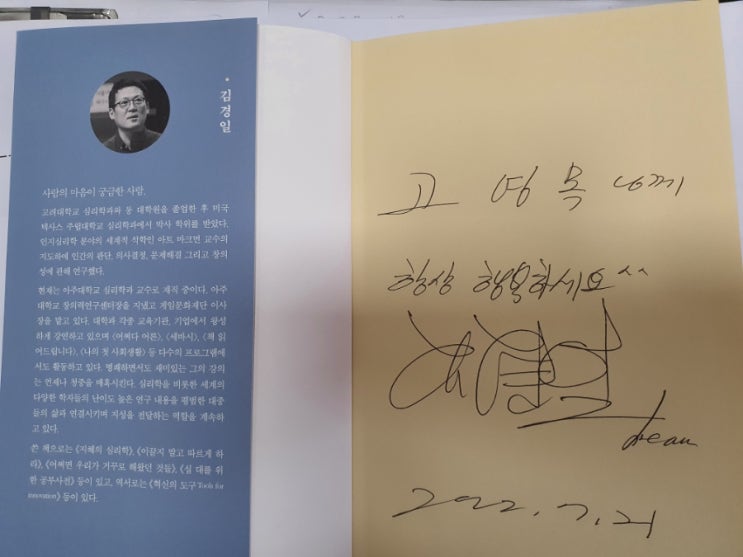 김경일
사람의 마음이 궁금한 사람.
고려대학교 심리학과와 동 대학원을 졸업한 후 미국
텍사스 주립대학교 심리학과에서 박사 학위를 받았다.
인지심리학 분야의 세계적 석학인 아트 마크먼 교수의
지도하에 인간의 판단, 의사결정, 문제해결 그리고 창의
성에 관해 연구했다.
현재는 아주대학교 심리학과 교수로 재직 중이다. 아주
대학교 창의력연구센터장을 지냈고 게임문화재단 이사
장을 맡고 있다. 대학과 각종 교육기관, 기업에서 왕성
하게 강연하고 있으며 〈어쩌다 어른〉, 〈세바시〉, 〈책 읽
어드립니다〉, 〈나의 첫 사회생활〉 등 다수의 프로그램에
서도 활동하고 있다. 명쾌하면서도 재미있는 그의 강의
는 언제나 청중을 매혹시킨다. 심리학을 비롯한 세계의
다양한 학자들의 난이도 높은 연구 내용을 평범한 대중
들의 삶과 연결시키며 지성을 전달하는 역할을 계속하
고 있다.
쓴 책으로는 《지혜의 심리학》, 《이끌지 말고 따르게 하
라》, 《어쩌면 우리가 거꾸로 해왔던 것들》, 《십 대를 위
한 공부사전》 등이 있고, 역서로는 《혁신의 도구 Tools for
innovation》 등이 있다.
고 영 목 님께
항상 행복하세요^^
dream
2022. 7. 21